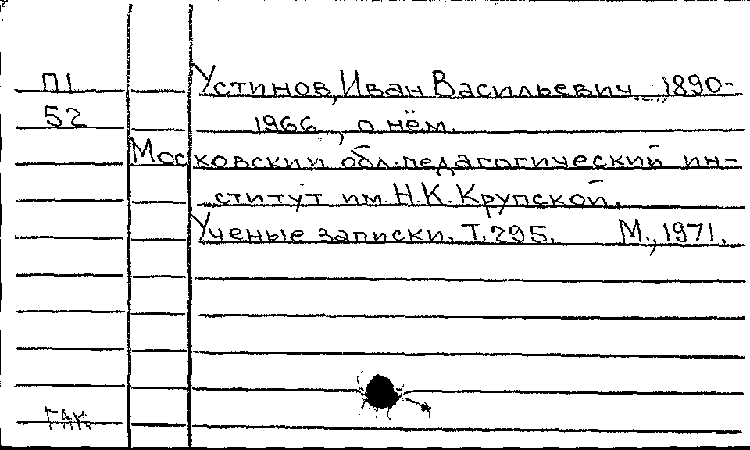 П1 Устинов, Иван Васильевич, 1890-
52 1966, о нём.
Московский обл. педагогический ин-
ститут им. Н.К. Крупской.
Ученые записки. Т.295. М., 1971.
ГАК